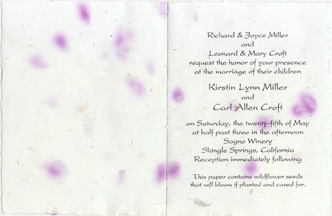 Richard & Joyce Miller
and
Leonard & Mary Croft
request the honor of your presence
at the marriage of their children
Kirstin Lynn Miller
and
Carl Allen Croft
on Saturday, the twenty-fifth of May
at half past three in the afternoon
Sogno Winery
Shingle Springs, California
Reception immediately following
This paper contains wildflower seeds
that will bloom if planted and cared for.